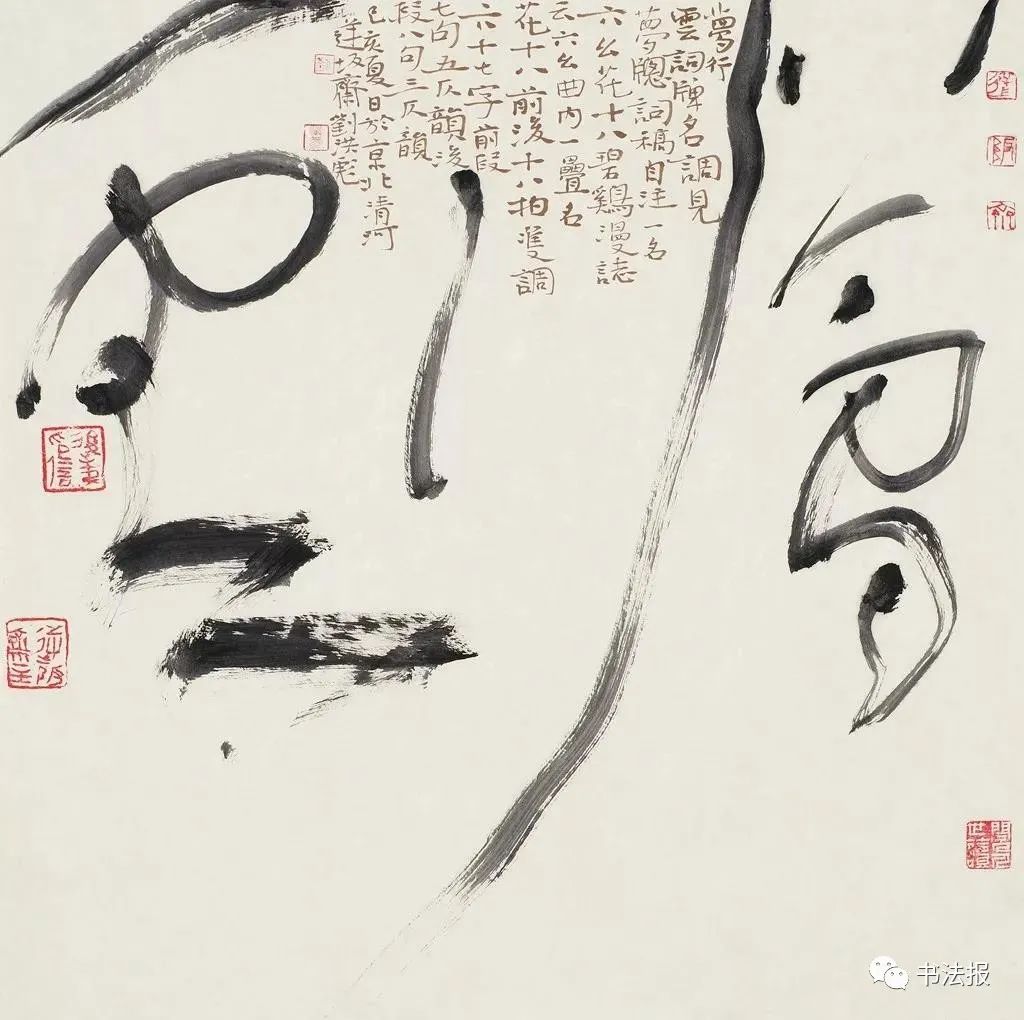 夢行雲
夢行
雲詞牌名調見
夢牕詞稿自注一名
六幺花十八碧鷄漫誌
云六幺曲内一疊名
花十八前後十八拍雙調
六十七字前段
七句五仄韻後
段八句三仄韻
己亥夏日於京北清河
逆坂齋劉洪彪
书法报